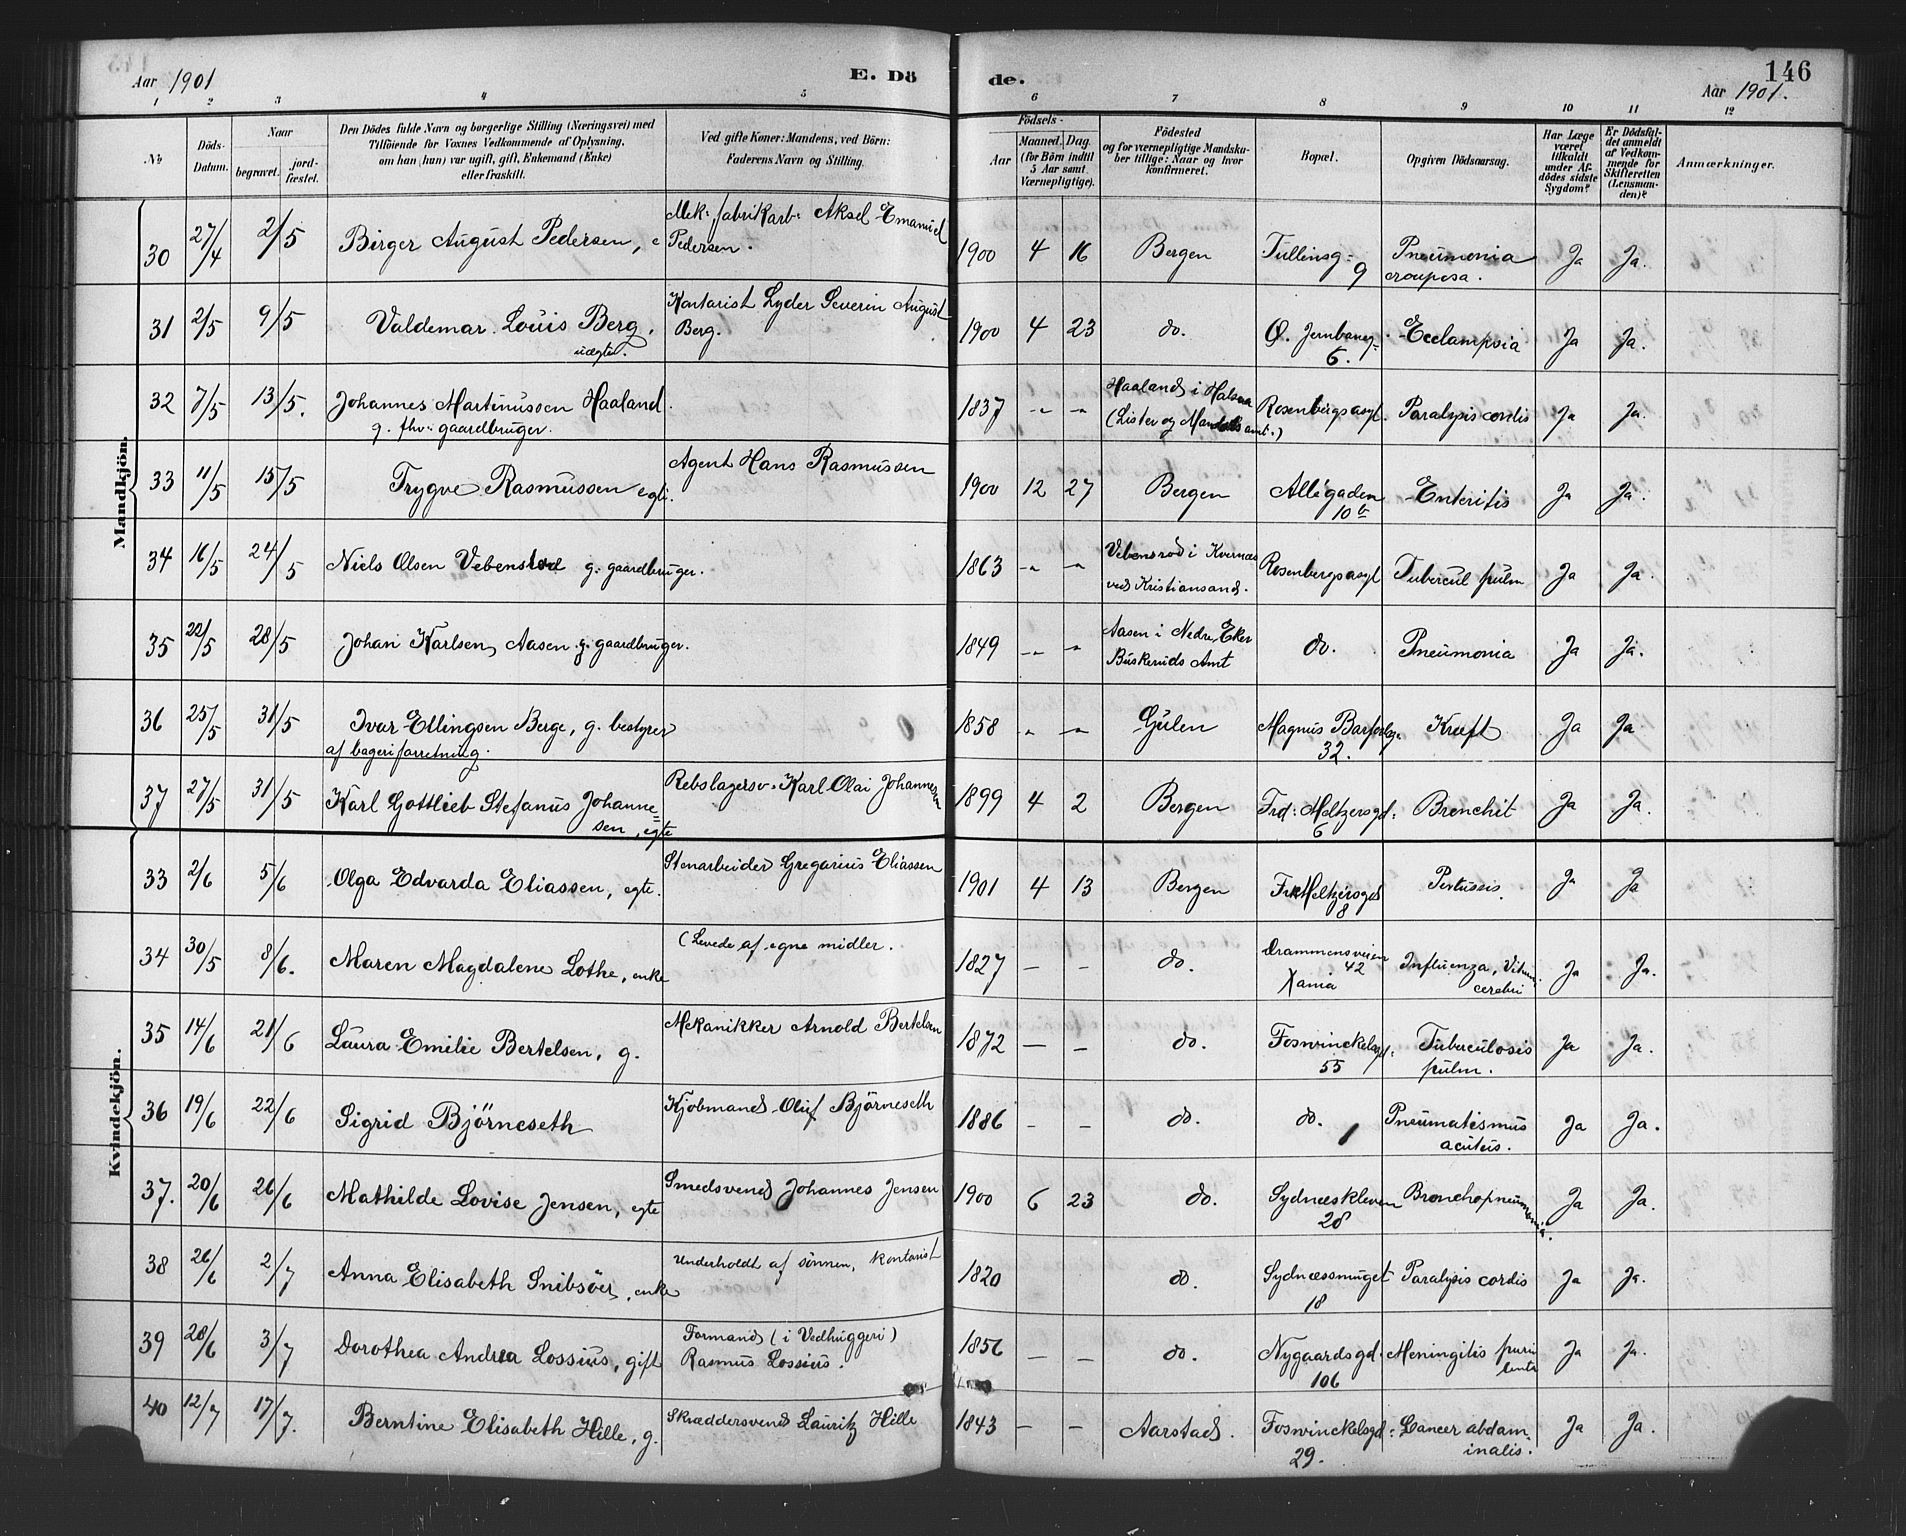 Aar 1901
E. Dö
de.
146
Aar 1901.
1 2 3 4 5 6 7 8 9 10 11 12
No
Döds-Datum.
Naar
begravet.
jord-fæstet.
Den Dödes fulde Navn og borgerlige Stilling (Næringsvei) med
Tilföiende for Voxnes Vedkommende af Oplysning,
om han (hun) var ugift, gift, Enkemand (Enke)
eller fraskilt.
Ved gifte Koner: Mandens, ved Börn:
Faderens Navn og Stilling.
Födsels-
Aar
Maaned. Dag.
(for Börn indtil
5 Aar samt
Værnepligtige).
Födested
og for værnepligtige Mandska-
ber tillige: Naar og hvor
konfirmeret.
Bopæl.
Opgiven Dödsaarsag.
Har Læge
været
tilkaldt
under Af-
dödes sidste
Sygdom?
Er Dödsfal-
det anmeldt
af Vedkom-
mende for
Skifteretten
(Lensman-
den)?
Anmærkninger.
Mandkjön.
30 27/4 2/5 Birger August Pedersen, e Mek. fabrikarb. Aksel Emanuel Pedersen. 1900 4 16 Bergen Tullinsg. 9 Pneumonia crouposa. Ja Ja.
31 2/5 9/5 Valdemar Louis Berg, uægte. Kontorist Lyder Severin August Berg. 1900 4 23 do. Ø. Jernbaneg. 6. Ecclampsia Ja Ja.
32 7/5 13/5. Johannes Martinussen Haaland g. fhv. gaardbruger. 1837 -"- -"- Haaland i Halsaa (Lister og Mandals amt.) Rosenbergs asyl. Paralysis cordis Ja Ja.
33 11/5 15/5 Trygve Rasmussen egte. Agent Hans Rasmussen 1900 12 27 Bergen Allégaden 10b Enteritis Ja Ja.
34 16/5 24/5 Niels Olsen g. gaardbruger. 1863 -"- -"- i ved Kristiansand. Rosenbergs asyl Tubercul pulm Ja Ja.
35 22/5 28/5 Johan Karlsen Aasen g. gaardbruger. 1849 -"- -"- Aasen i Nedre Eker Buskeruds Amt do. Pneumonia Ja Ja.
36 25/5 31/5 Ivar Ellingsen Berge, g. bestyrer af bageriforretning. 1858 -"- -"- Gulen Magnus Barfodsg. 32. Kræft Ja Ja
37 27/5 31/5 Karl Gottlieb Stefanus Johanne=sen, egte Rebslagersv. Karl Olai Johannesen 1899 4 2 Bergen Frd. Meltzersgd. 6 Bronchit Ja Ja.
Kvindekjön.
33 2/6 5/6 Olga Edvarda Eliassen, egte. Stenarbeider Gregarius Eliassen 1901 4 13 Bergen Fr. Meltzersgd 8 Pertussis. Ja Ja
34 30/5 8/6. Maren Magdalene Lothe, enke (Levede af egne midler. 1827 - - do. Drammensveien 42 Xania Influenza, Vitium cerebri Ja Ja.
35 14/6 21/6 Laura Emilie Bertelsen, g. Mekanikker Arnold Bertelsen 1872 - - do. Foswinckelsgd. 55 Tuberculosis pulm. Ja Ja.
36 19/6 22/6 Sigrid Björneseth Kjøbmand Oluf Björneseth 1886 - - do. do. 1 acutus. Ja Ja.
37. 20/6 26/6 Mathilde Lovise Jensen, egte Smedsvend Johannes Jensen 1900 6 23 do. Sydneskleven 28 Bronchopneumonia. Ja Ja.
38 26/6 2/7 Anna Elisabeth Snibsöer, enke Underholdt af sønnen, kontorist 1820 do. Sydnessmuget 18 Paralysis cordis Ja Ja.
39 28/6 3/7 Dorothea Andrea Lossius, gift Formand (i Vedhuggeri) Rasmus Lossius. 1856 - - do. Nygaardsgd. 106 Meningitis purulenta Ja Ja.
40 12/7 17/7. Berntine Elisabeth Hille, g. Skræddersvend Lauritz Hille 1843 - - Aarstad. Foswinckelsgd. 29. Cancer abdominalis. Ja Ja.